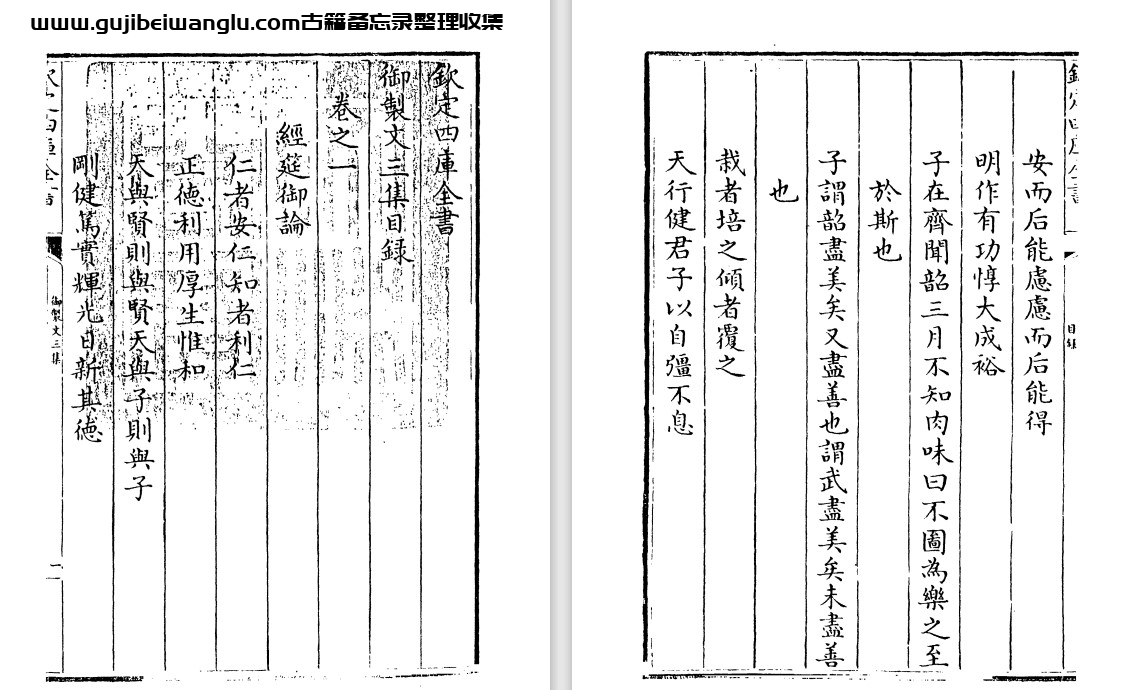 www.gujibeiwanglu.com古籍备忘录整理收集
欽定四庫全書
御製文三集目録
卷之一
經筵御論
仁者安仁知者利仁
正德利用厚生惟和
天與賢則與賢天與子則與子
剛健篤實輝光日新其德
御製文三集
目録
安而后能慮慮而后能得
明作有功惇大成裕
子在齊聞韶三月不知肉味曰不圖為樂之至
於斯也
子謂韶盡美矣又盡善也謂武盡美矣未盡善
也
栽者培之傾者覆之
天行健君子以自彊不息